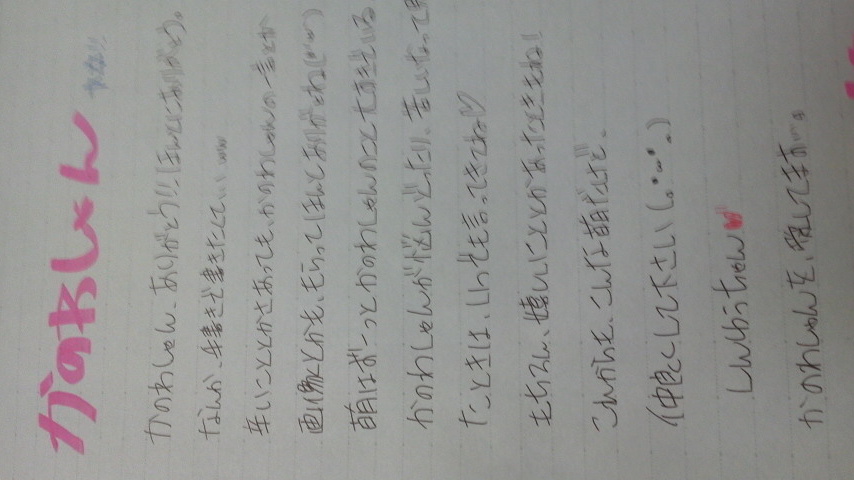 かのわしゃん
かのわしゃん、ありがとう!! ほんとにありがとう。
なんか、手書きで書きたくて、、、ww
辛いこととかさあっても、かのわしゃんの言とか
画像とかを、もらって ほんとありがとね
萌はずーっとかのわしゃんのこと大好き
かのわしゃんが悩んどったり、苦しいなって思
たときは、いつでも言ってきてね♡
もちろん、嬉しいこととかあったときもね!
これからも、こんな萌だけど、
仲良くして下さい(。・ω・。)
しんゆうちゃん♥
かのわしゃんを、愛してます。